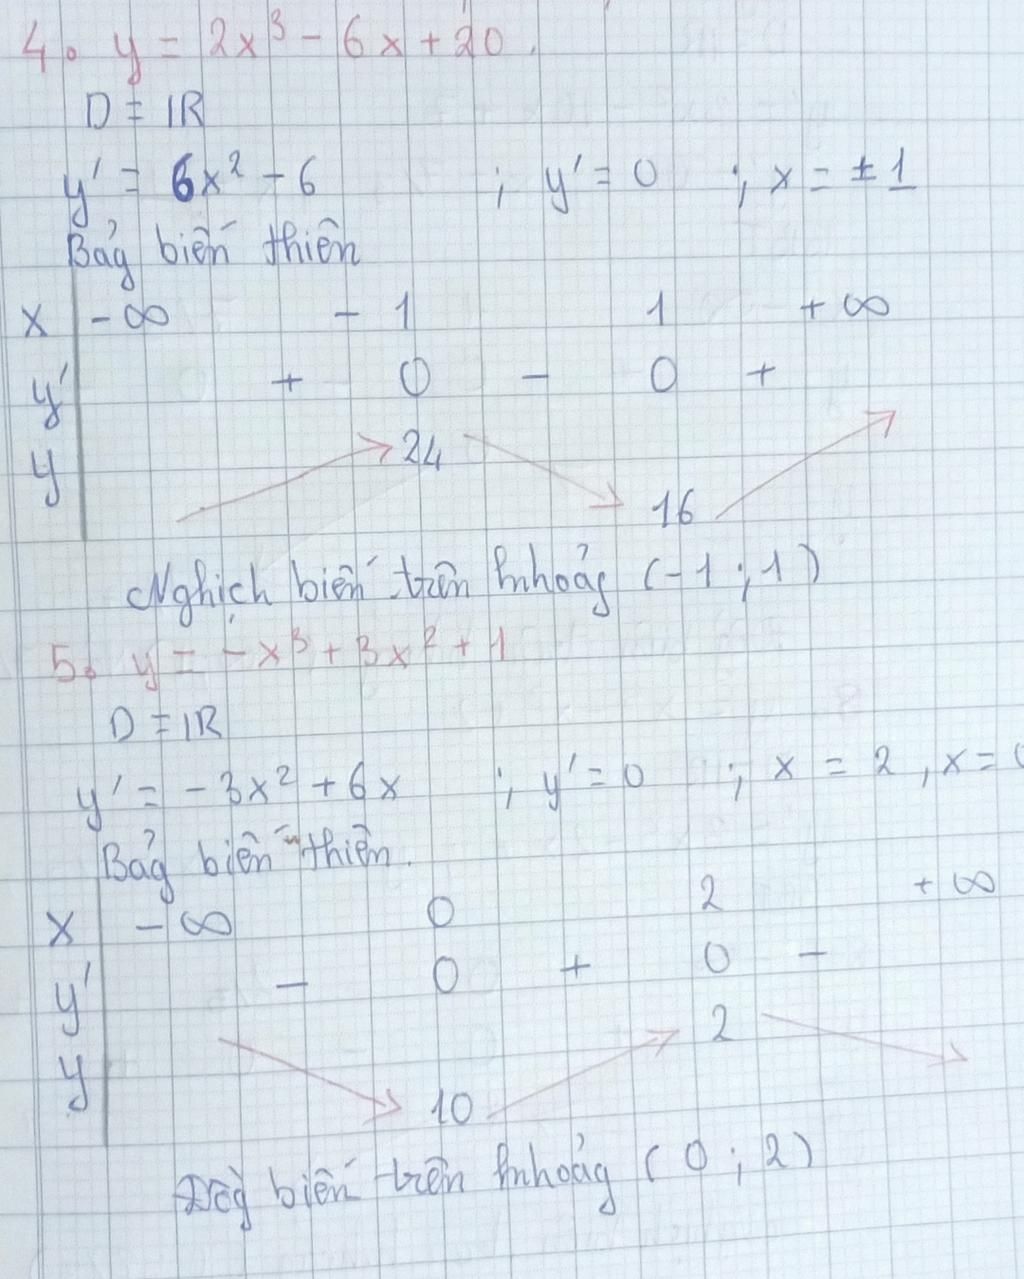 4. y = 2x³ - 6x + 20.
D = IR
y' = 6x² - 6 ; y' = 0 ; x = ± 1
Bảg biến thiên
x -∞ -1 1 +∞
y' + 0 - 0 +
24
y
16
Nghịch biến trên khoảg (-1 ; 1)
5. y = -x³ + 3x² + 1
D = IR
y' = -3x² + 6x ; y' = 0 ; x = 2 , x = 0
Bảg biến thiên.
x -∞ 0 2 +∞
y' - 0 + 0 -
2
y
10
Đồg biến trên khoảg (0 ; 2)